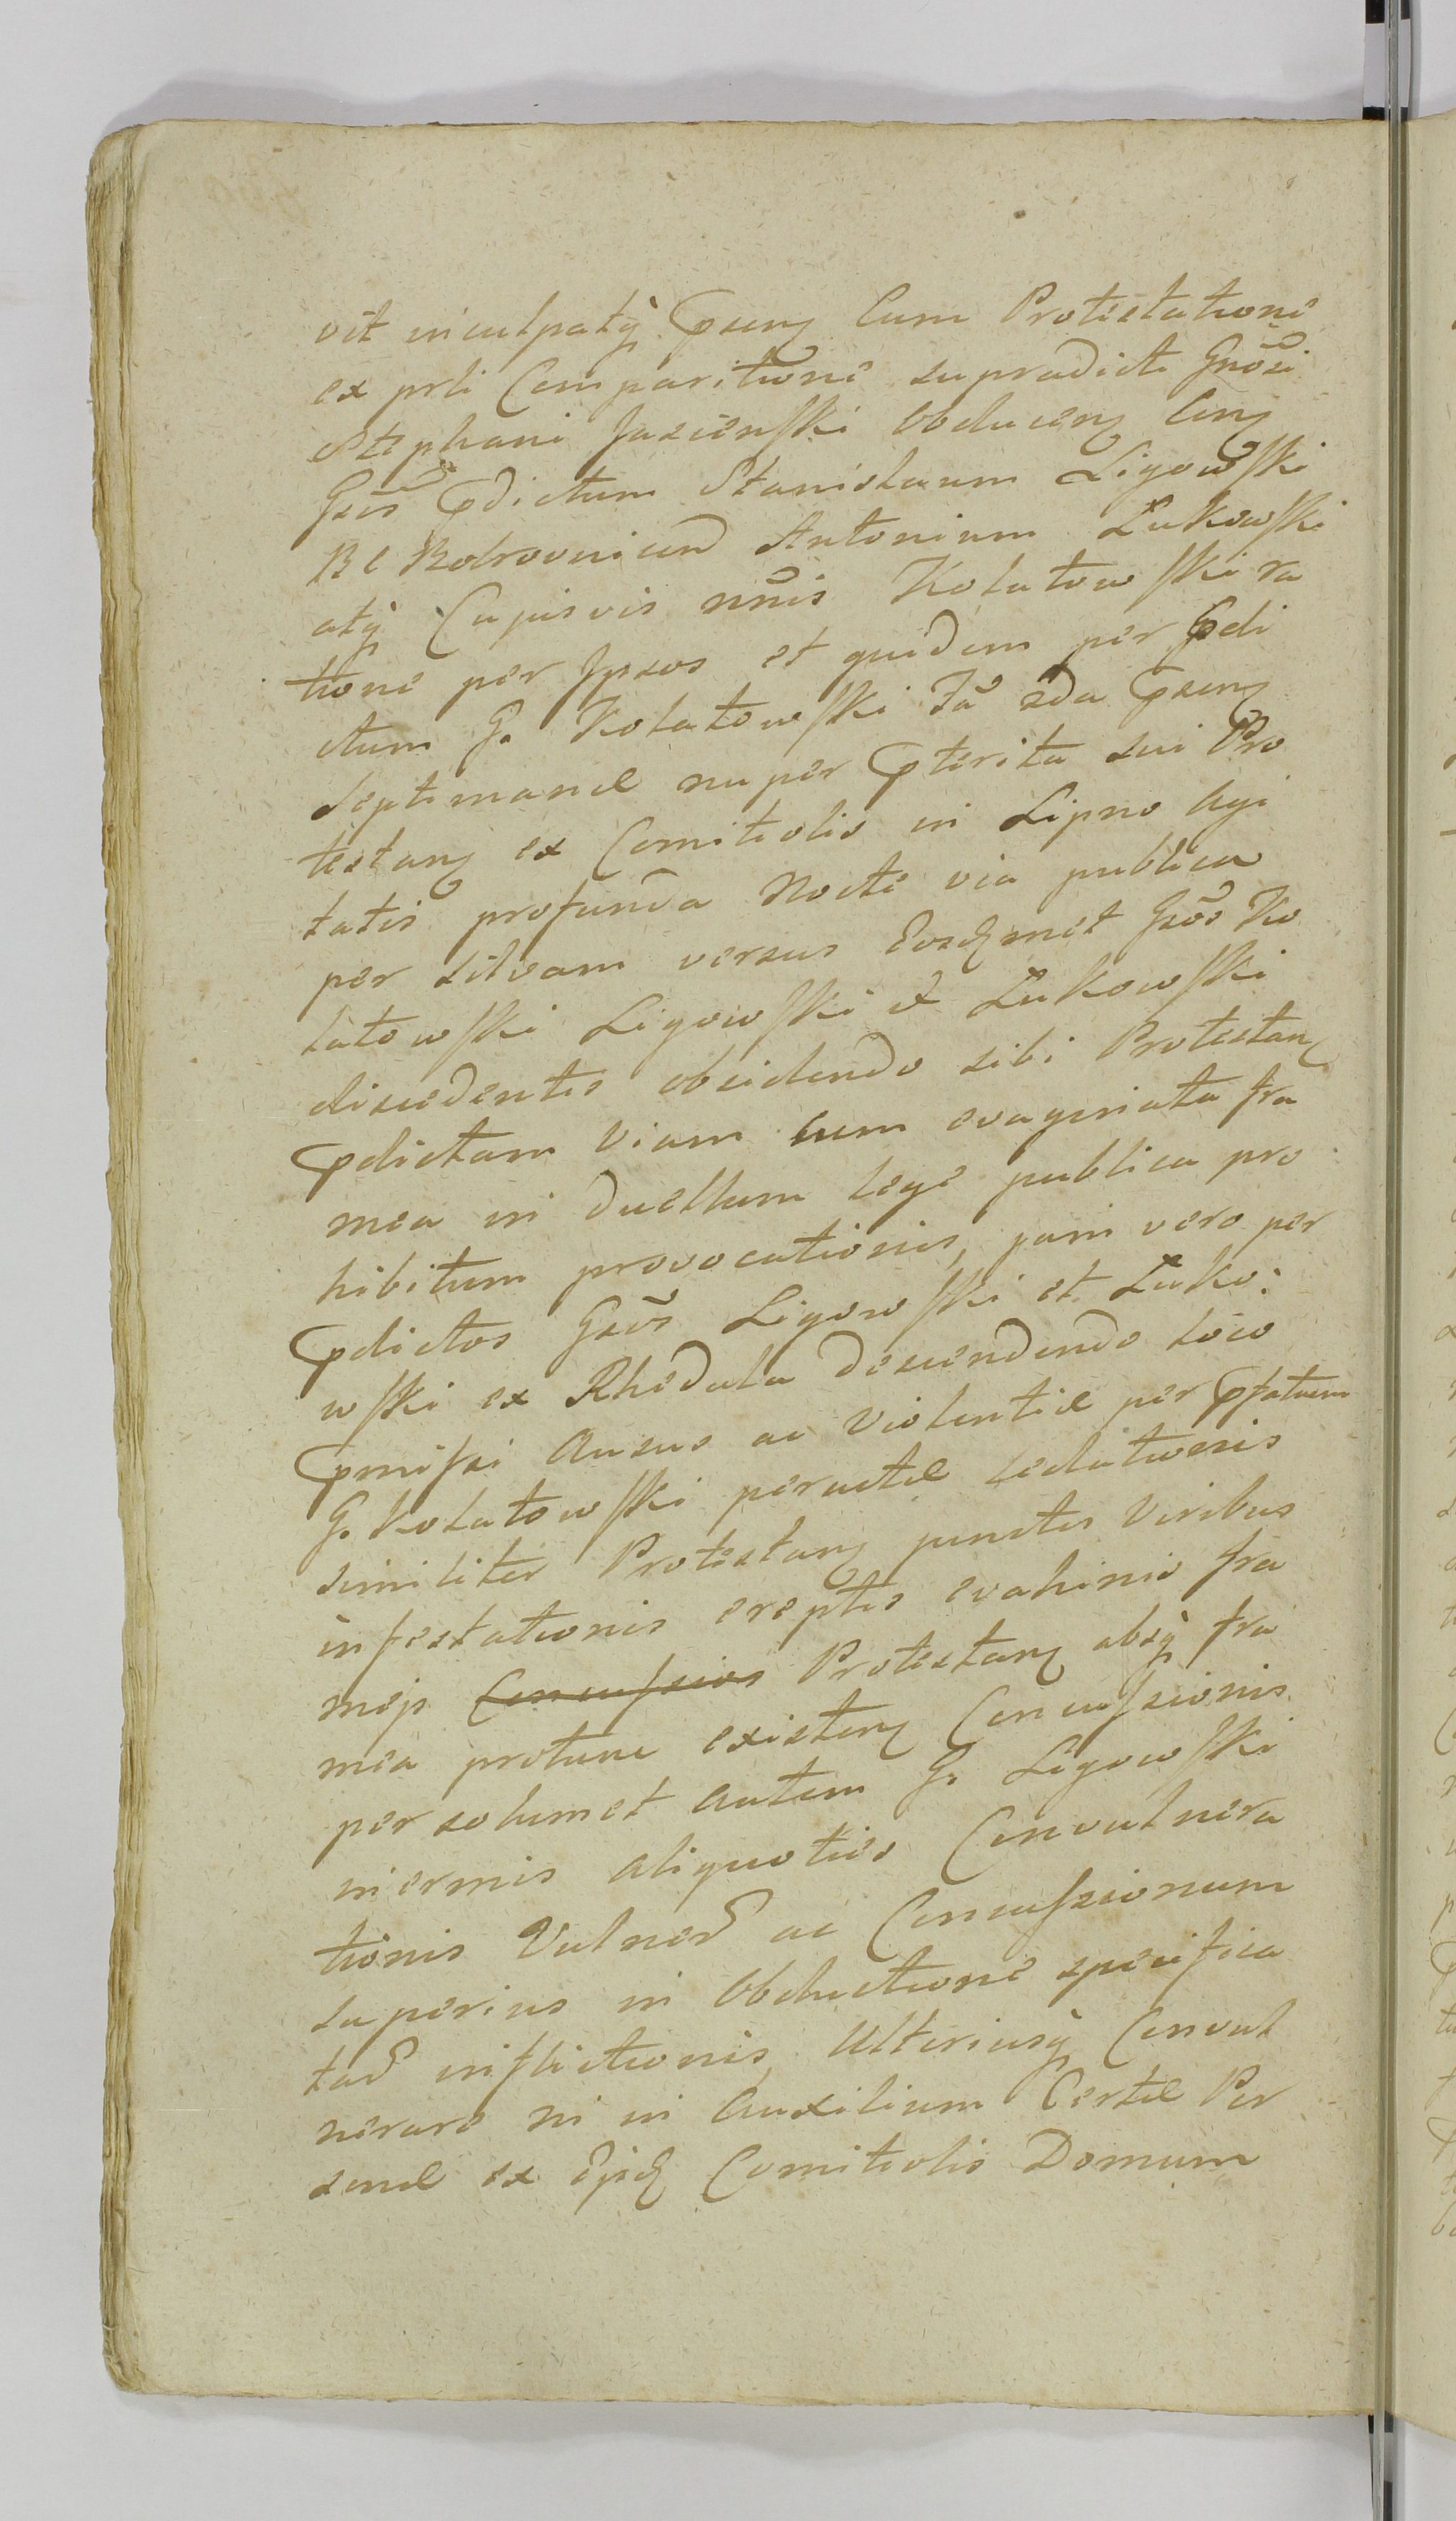 vit inculpatq̀ Pseng Cum Protestatione
ex prti Comparitione supradicti Gnõsi
Stephani Jasienſki Obduceng Cong
Gsūs Pdictum Stanislaum Ligowſki
Antonium Łukowſki
atq̀ Cujusvis nñis Kołatowſki ra
tione per Ipsos et quidem per Pdi
ctum G. Kołatowſki Fã 2da Pseng
Septimanæ nuper Pterita sui Pro
testang ex Comitiolis in Lipno Agi
tatis profunda Nocte via publica
per silvam versus Eosqmet Gsõs Ko
łatowſki Ligowſki et Łukowſki
discedentis obsidendo sibi Protestang
Pdictam Viam cum evaginata fra
mea in Duellum lege publica pro
hibitum provocationis, jam vero per
Pdictos Gsōs Ligowſki et Łuko:
wſki ex Rhedula descendendo loco
Pmiſsi Ausus ac Violentiæ per Pfatum
G. Kołatowſki peractæ sedationis
similiter Protestang junctis Viribus
infestationis ereptis evahinis fra
meis Concuſsios Protestang absq̀ fra
mea protunc existeng Concuſsionis
per solumet autem G. Ligowſki
inermis aliquoties Convulnera
tionis Vulner ac Concuſsionum
superius in Obductione specifica
tar inflictionis, Ulteriusq̀ Convul
nerare ni in Auxilium Certæ Per
sonæ ex Comitiolis Domum